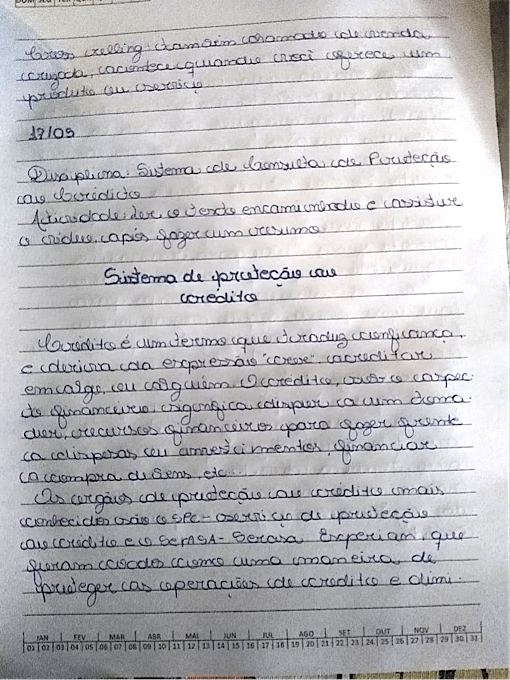 Cross selling: também chamado de venda
cruzada, acontece quando você oferece um
produto ou serviço
17/09
Disciplina: Sistema de Consulta de Proteção
ao Crédito
Atividade: Ler o texto encaminhado e assistir
o vídeo, após fazer um resumo
Sistema de proteção ao
crédito
Crédito é um termo que traduz confiança,
e deriva da expressão "crer", acreditar
em algo, ou alguém. O crédito, sob o aspec-
to financeiro, significa dispor a um toma-
dor, recursos financeiros para fazer frente
a dispesas ou investimentos, financiar
a compra de bens, etc...
Os orgãos de proteção ao crédito mais
conhecidos são o SPC - serviço de proteção
ao crédito e o SERASA - Serasa Experian, que
foram criados como uma maneira de
proteger as operações de crédito e dimi-
JAN FEV MAR ABR MAI JUN JUL AGO SET OUT NOV DEZ
01 02 03 04 05 06 07 08 09 10 11 12 13 14 15 16 17 18 19 20 21 22 23 24 25 26 27 28 29 30 31